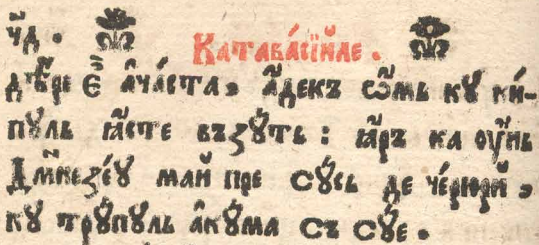 ч҃д.
Катава́сїйле.
дѣ́ре є҆́ а҆ча́ста, а҆́декъ ѡ҆́мь кꙋ ки́-
пꙋль ꙗ҆́сте възꙋ́ть : ꙗ҆́ръ ка оу҆́нь
Дм҃незе́ꙋ май пре сꙋ́сь де че́рюрй,
кꙋ трꙋ́пꙋль а҆кꙋма съ сꙋ́е.